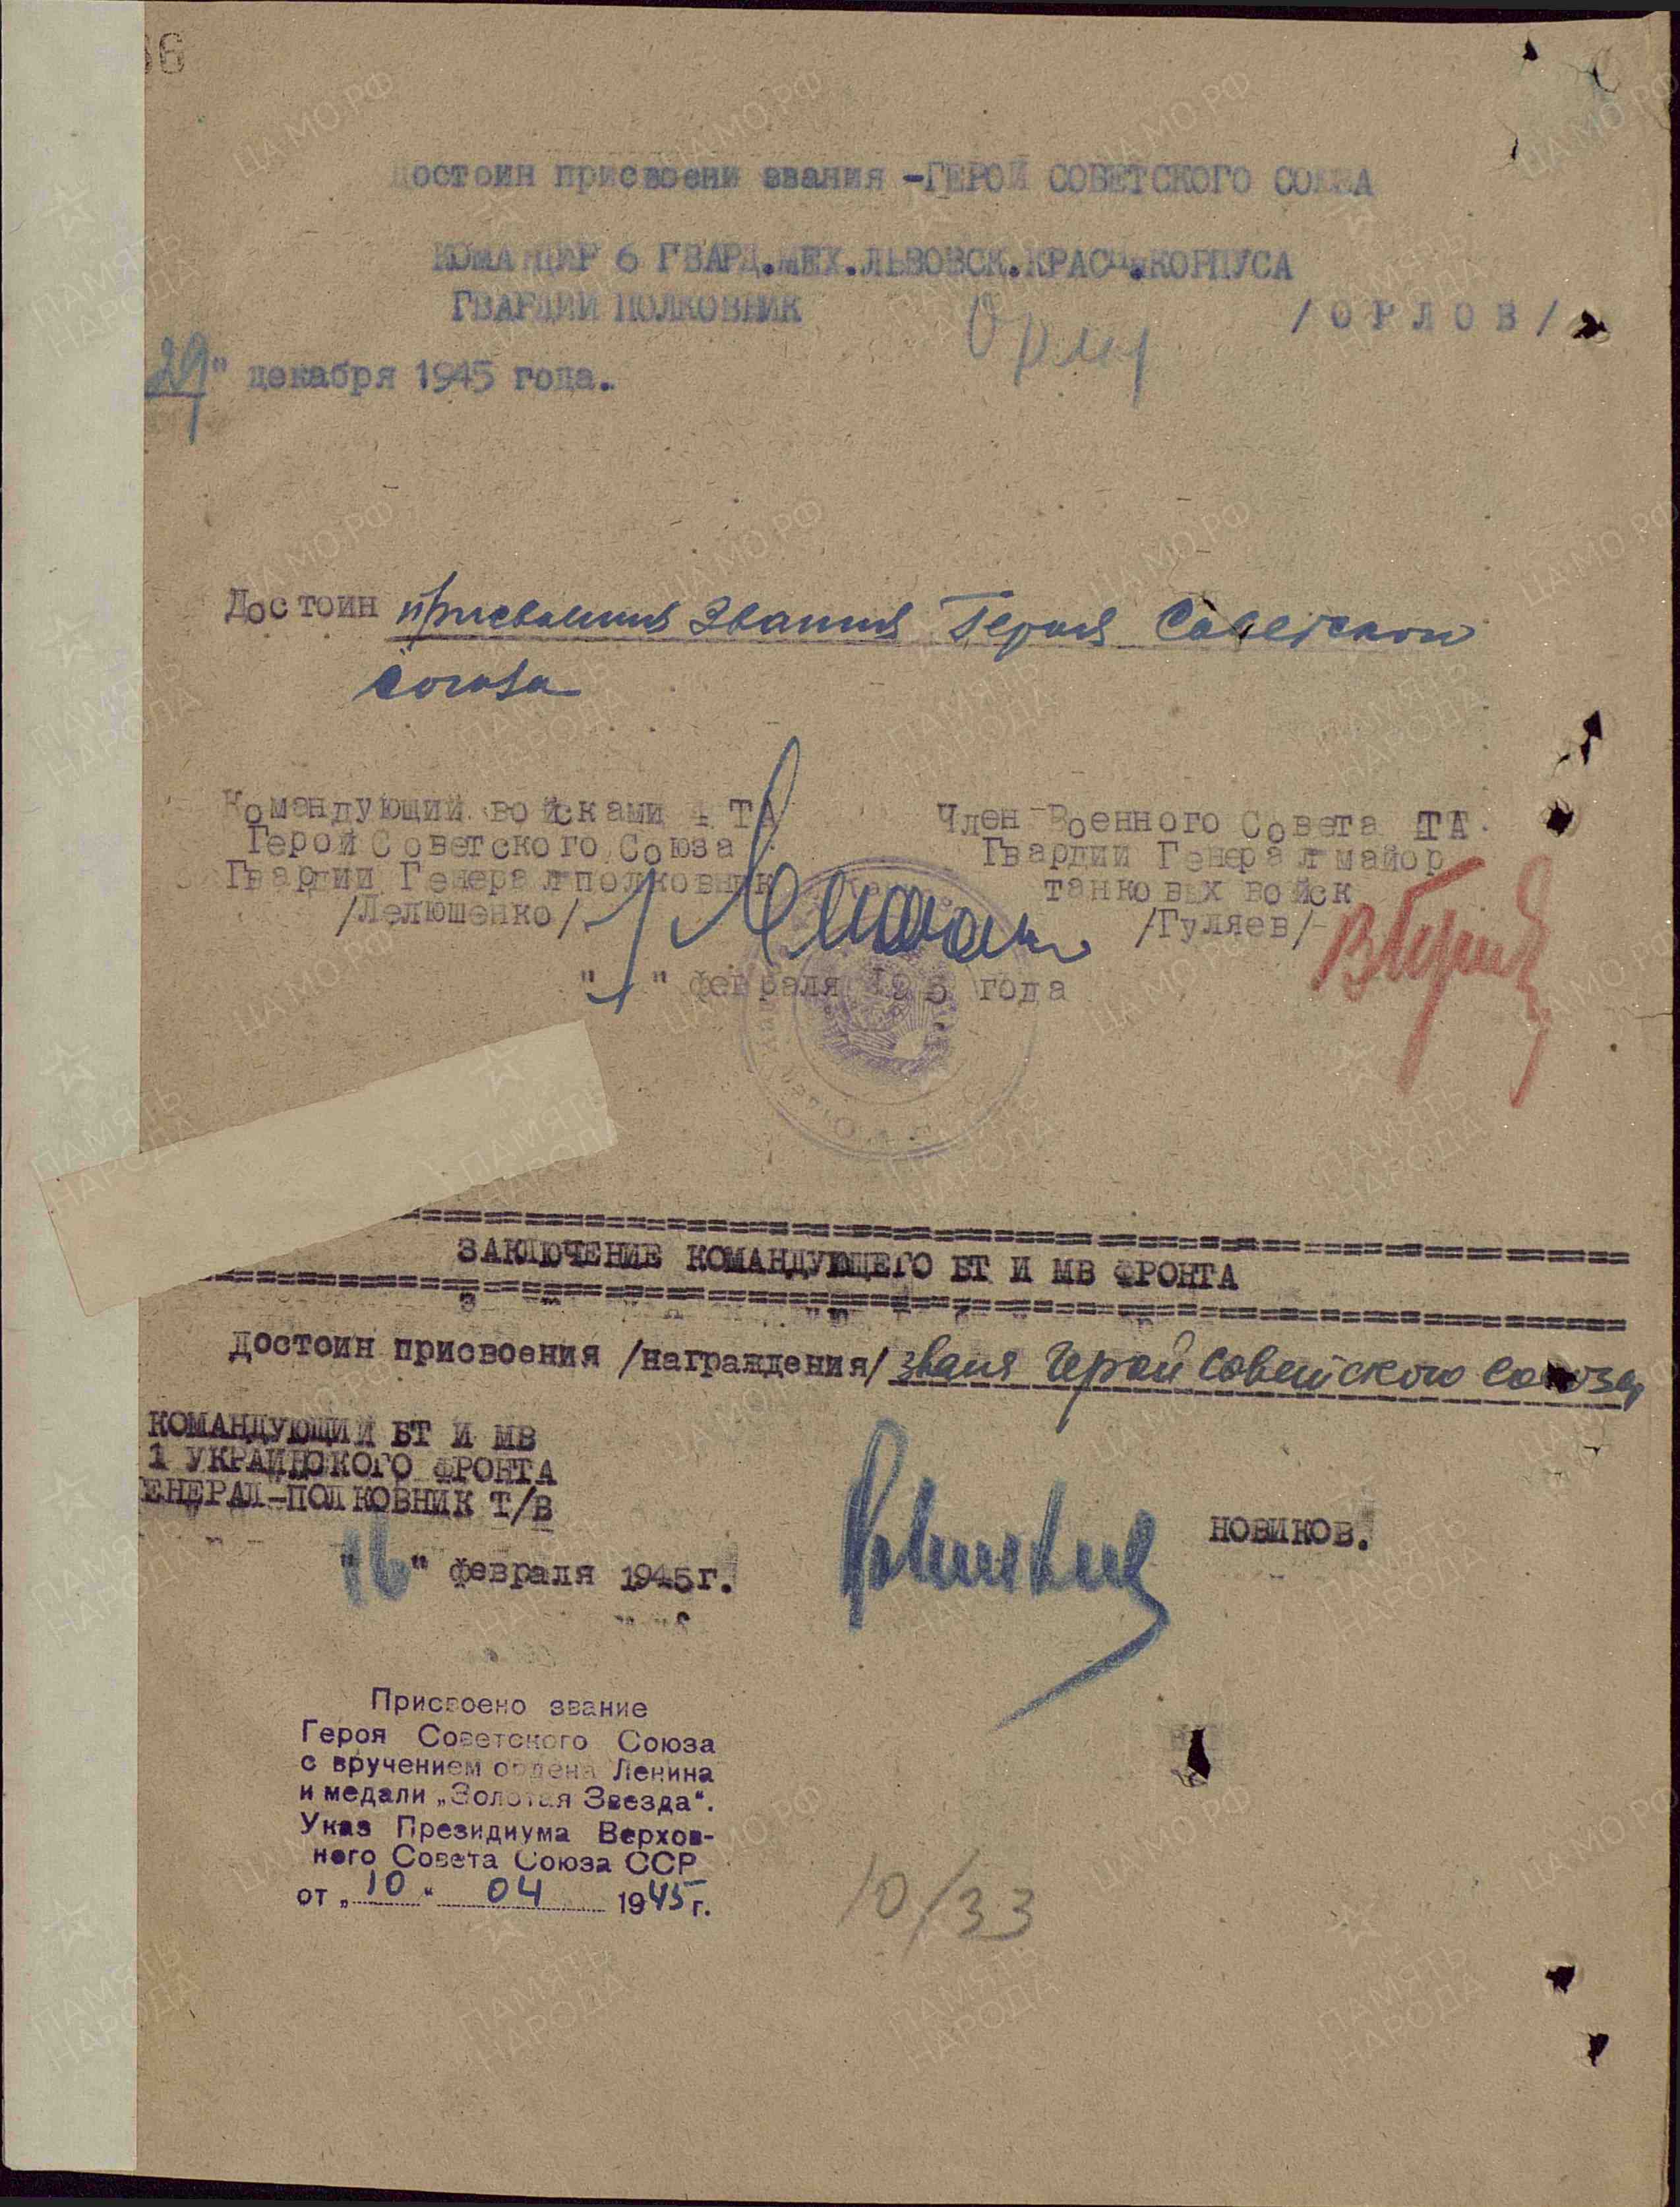 36
Достоин присвоени звания -ГЕРОЙ СОВЕТСКОГО СОЮЗА
КОМАНДИР 6 ГВАРД.МЕХ.ЛЬВОВСК.КРАСН.КОРПУСА
ГВАРДИИ ПОЛКОВНИК /ОРЛОВ/
"29" декабря 1945 года.
Достоин присвоения звания Героя Советского
Союза
Командующий войсками 4 ТА
Герой Советского Союза
Гвардии Генерал полковник
/Лелюшенко/
Член Военного Совета ТА
Гвардии Генерал майор
танковых войск
/Гуляев/
" " февраля 1945 года
ЗАКЛЮЧЕНИЕ КОМАНДУЮЩЕГО БТ И МВ ФРОНТА
Достоин присвоения /награждения/ звания Герой Советского Союза
КОМАНДУЮЩИЙ БТ И МВ
1 УКРАИНСКОГО ФРОНТА
ЕНЕРАЛ-ПОЛКОВНИК Т/В
НОВИКОВ.
"16" февраля 1945г.
Присвоено звание
Героя Советского Союза
с вручением ордена Ленина
и медали „Золотая Звезда".
Указ Президиума Верхов-
ного Совета Союза ССР
от „10" 04 1945 г.
10/33
ЦАМО.РФ
ПАМЯТЬ
НАРОДА